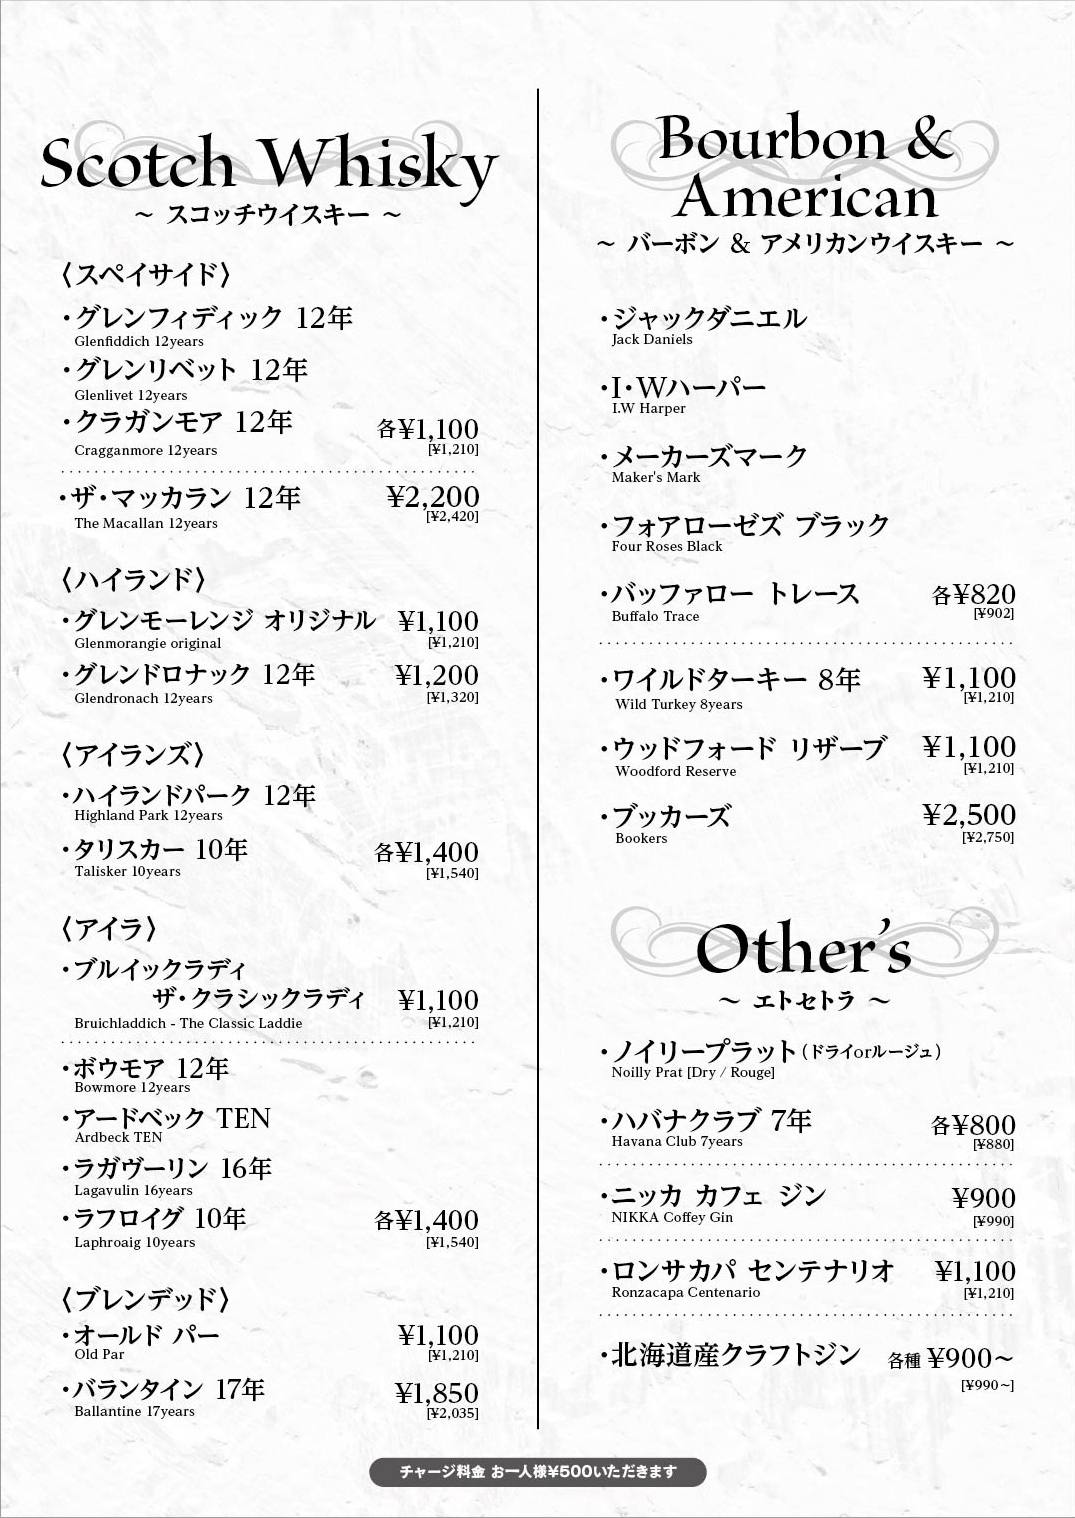 Scotch Whisky
～ スコッチウイスキー ～
〈スペイサイド〉
・グレンフィディック 12年
Glenfiddich 12years
・グレンリベット 12年
Glenlivet 12years
・クラガンモア 12年 各¥1,100
Cragganmore 12years [¥1,210]
・ザ・マッカラン 12年 ¥2,200
The Macallan 12years [¥2,420]
〈ハイランド〉
・グレンモーレンジ オリジナル ¥1,100
Glenmorangie original [¥1,210]
・グレンドロナック 12年 ¥1,200
Glendronach 12years [¥1,320]
〈アイランズ〉
・ハイランドパーク 12年
Highland Park 12years
・タリスカー 10年 各¥1,400
Talisker 10years [¥1,540]
〈アイラ〉
・ブルイックラディ
ザ・クラシックラディ ¥1,100
Bruichladdich - The Classic Laddie [¥1,210]
・ボウモア 12年
Bowmore 12years
・アードベック TEN
Ardbeck TEN
・ラガヴーリン 16年
Lagavulin 16years
・ラフロイグ 10年 各¥1,400
Laphroaig 10years [¥1,540]
〈ブレンデッド〉
・オールド パー ¥1,100
Old Par [¥1,210]
・バランタイン 17年 ¥1,850
Ballantine 17years [¥2,035]
Bourbon &
American
～ バーボン & アメリカンウイスキー ～
・ジャックダニエル
Jack Daniels
・I・Wハーパー
I.W Harper
・メーカーズマーク
Maker's Mark
・フォアローゼズ ブラック
Four Roses Black
・バッファロー トレース 各¥820
Buffalo Trace [¥902]
・ワイルドターキー 8年 ¥1,100
Wild Turkey 8years [¥1,210]
・ウッドフォード リザーブ ¥1,100
Woodford Reserve [¥1,210]
・ブッカーズ ¥2,500
Bookers [¥2,750]
Other's
～ エトセトラ ～
・ノイリープラット（ドライorルージュ）
Noilly Prat [Dry / Rouge]
・ハバナクラブ 7年 各¥800
Havana Club 7years [¥880]
・ニッカ カフェ ジン ¥900
NIKKA Coffey Gin [¥990]
・ロンサカパ センテナリオ ¥1,100
Ronzacapa Centenario [¥1,210]
・北海道産クラフトジン 各種 ¥900～
[¥990～]
チャージ料金 お一人様¥500いただきます